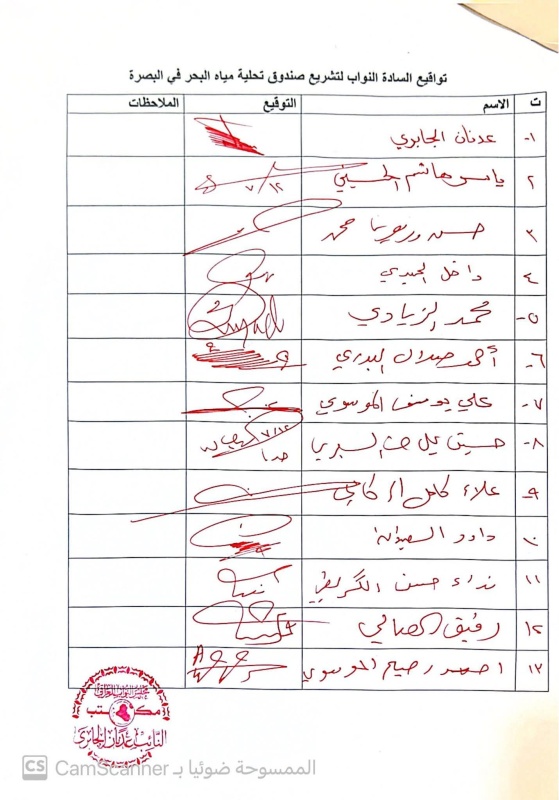 تواقيع السادة النواب لتشريع صندوق تحلية مياه البحر في البصرة
ت الاسم التوقيع الملاحظات
١- عدنان الجابري
٢ ياسر هاشم الحسيني ٧/١٢
٣ حسن محمد
٤ داخل
٥- محمد الزيادي
٦- أحمد صدال البدري
٧- علي يوسف الموسوي
٨- حسين ٧/١٢
٩ علاء كامل
١٠ داود
١١ نداء حسن الكريطي
١٢ رفيق الصالحي
١٣ احمد رحيم الموسوي
مجلس النواب العراقي
مكتب
النائب عدنان الجابري
CS CamScanner الممسوحة ضوئيا بـ